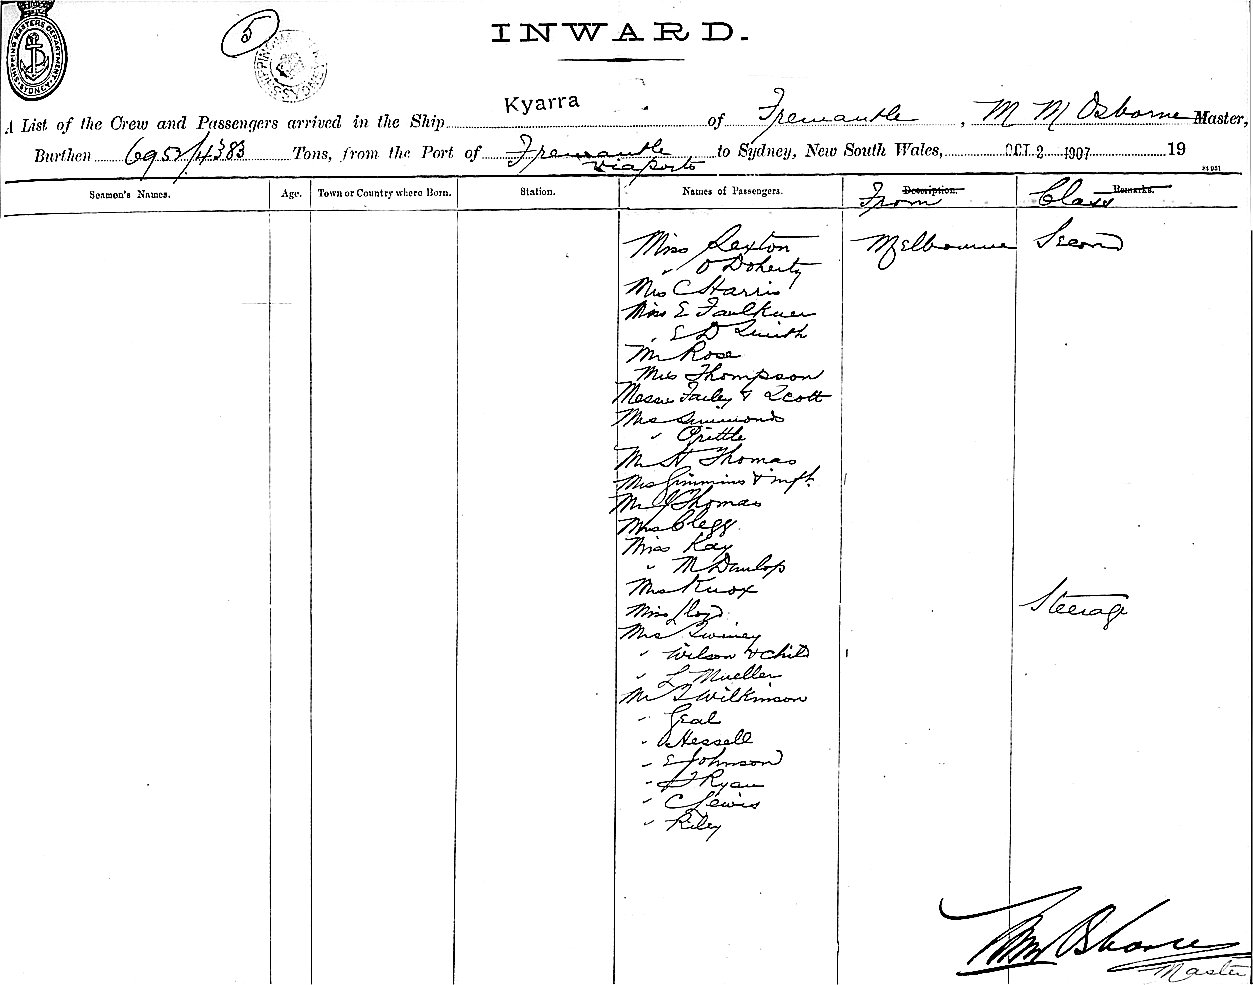 5
INWARD.
SHIPPING MASTERS DEPARTMENT SYDNEY
Kyarra
A List of the Crew and Passengers arrived in the Ship of Fremantle, M M Osborne Master,
Burthen 6952/4383 Tons, from the Port of Fremantle via ports to Sydney, New South Wales, OCT 2 1907 19
Seamen's Names. Age. Town or Country where Born. Station. Names of Passengers. Description. From Remarks. Class
Miss Sexton Melbourne Second
" O'Doherty
Mrs C Harris
Miss E Faulkner
" E D Smith
Mr Rose
Mrs Thompson
Messrs Failey & Scott
Mrs Simmonds
"
Mr H Thomas
Mrs Simmins & inft.
Mr J Thomas
Mrs Clegg
Miss Kay
" M Dunlop
Mrs Knox Steerage
Miss Lloyd
Mrs Swiney
" Wilson & Child
" L Mueller
Mr T Wilkinson
" Geal
" Hessell
" E Johnson
" Ryan
" C Lewis
" Riley
Osborne
Master